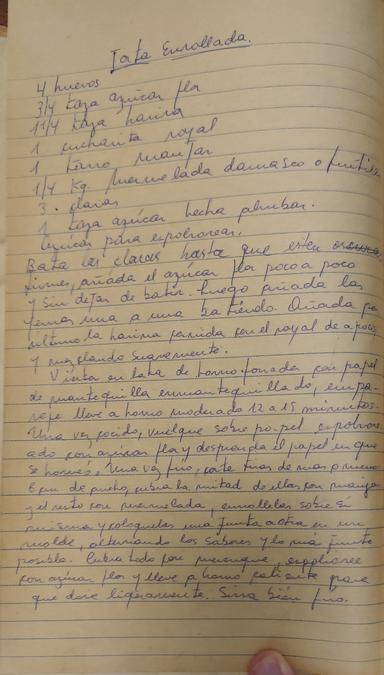 Torta Enrollada.
4 huevos
3/4 taza azúcar flor
1 1/4 taza harina
1 cucharita royal
1 tarro manjar
1/4 Kg. mermelada damasco o frutilla
3. claras
1 taza azúcar hecha almíbar.
azúcar para espolvorear.
Bata las claras hasta que esten
firmes, añada el azúcar flor poco a poco
y sin dejar de batir. Luego añada las
yemas una a una batiendo. Añada por
último la harina cernida con el royal de a poco
y mezclando suavemente.
Vierta en lata de horno forrada con papel
de mantequilla enmantequillado,
lleve a horno moderado 12 a 15 minutos.
Una vez cocido, vuelque sobre papel espolvore
ado con azúcar flor y desprenda el papel en que
se horneó. Una vez frío, corte tiras de más o menos
de ancho, cubra la mitad de ellas con manjar
y el resto con mermelada, enróllelas sobre si
misma y colóquelas una junta a otra en un
molde, alternando los sabores y lo más junto
posible. Cubra todo con merengue, espolvoree
con azúcar flor y lleve a horno caliente para
que dore ligeramente. Sirva bién frío.